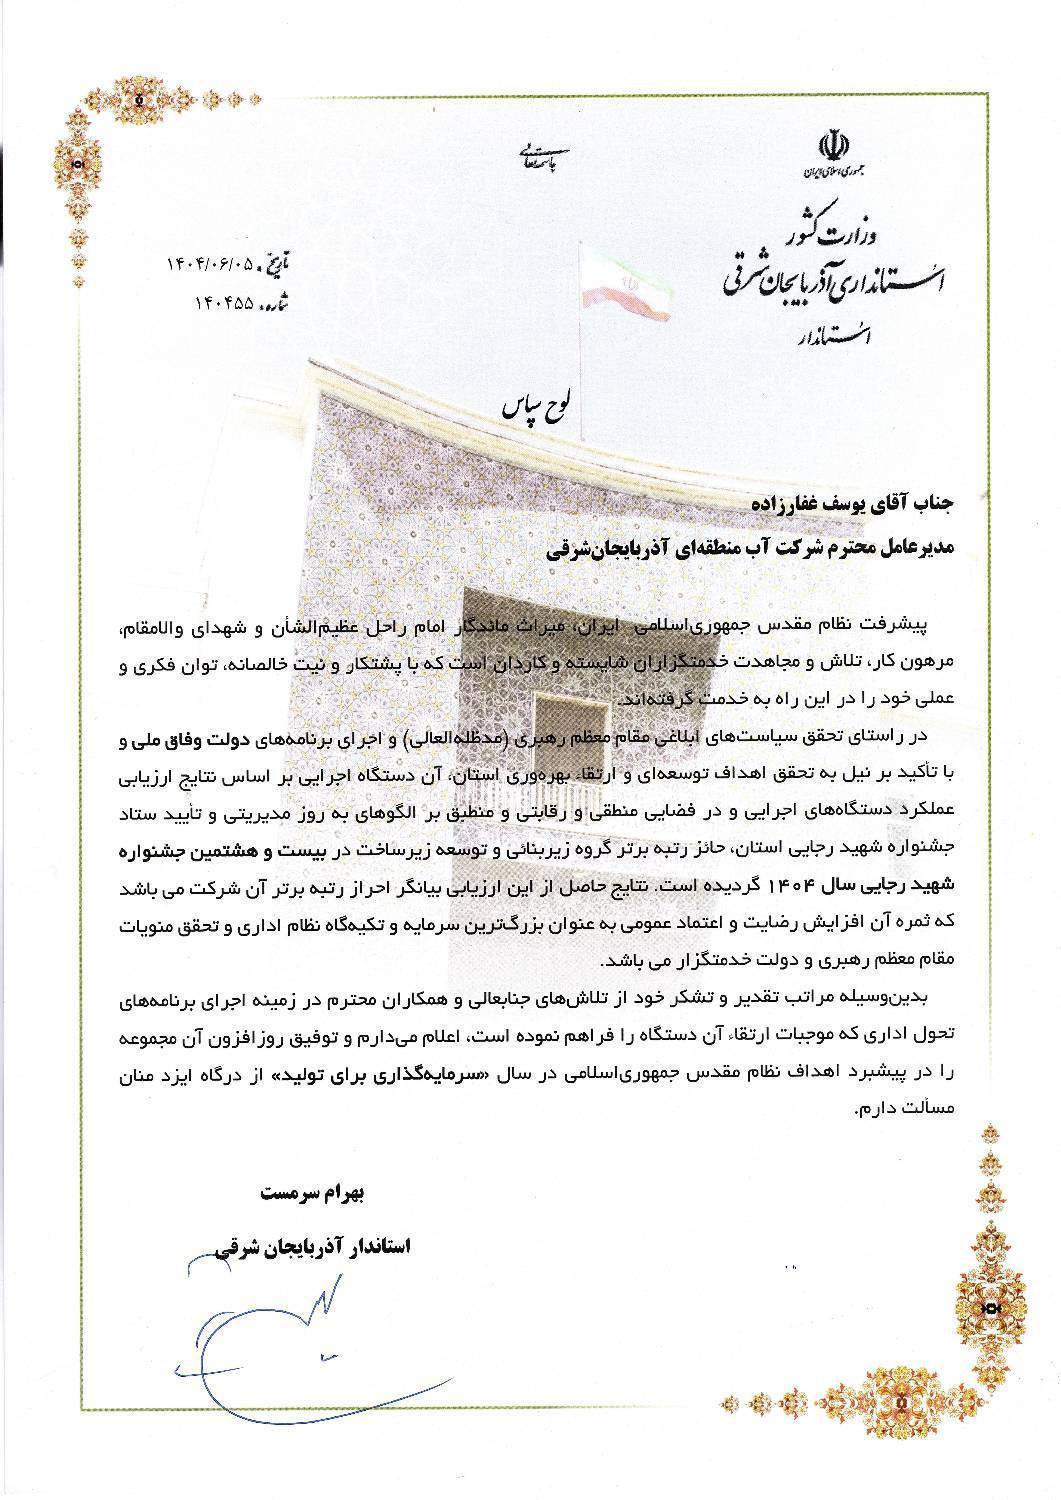 باسمه تعالی
جمهوری اسلامی ایران
وزارت کشور
استانداری آذربایجان شرقی
استاندار
تاریخ: ۱۴۰۴/۰۶/۰۵
شماره: ۱۴۰۴۵۵
لوح سپاس
جناب آقای یوسف غفارزاده
مدیرعامل محترم شرکت آب منطقه‌ای آذربایجان‌شرقی
پیشرفت نظام مقدس جمهوری‌اسلامی ایران، میراث ماندگار امام راحل عظیم‌الشأن و شهدای والامقام،
مرهون کار، تلاش و مجاهدت خدمتگزاران شایسته و کاردان است که با پشتکار و نیت خالصانه، توان فکری و
عملی خود را در این راه به خدمت گرفته‌اند.
در راستای تحقق سیاست‌های ابلاغی مقام معظم رهبری (مدظله‌العالی) و اجرای برنامه‌های دولت وفاق ملی و
با تأکید بر نیل به تحقق اهداف توسعه‌ای و ارتقاء بهره‌وری استان، آن دستگاه اجرایی بر اساس نتایج ارزیابی
عملکرد دستگاه‌های اجرایی و در فضایی منطقی و رقابتی و منطبق بر الگوهای به روز مدیریتی و تأیید ستاد
جشنواره شهید رجایی استان، حائز رتبه برتر گروه زیربنائی و توسعه زیرساخت در بیست و هشتمین جشنواره
شهید رجایی سال ۱۴۰۴ گردیده است. نتایج حاصل از این ارزیابی بیانگر احراز رتبه برتر آن شرکت می باشد
که ثمره آن افزایش رضایت و اعتماد عمومی به عنوان بزرگ‌ترین سرمایه و تکیه‌گاه نظام اداری و تحقق منویات
مقام معظم رهبری و دولت خدمتگزار می باشد.
بدین‌وسیله مراتب تقدیر و تشکر خود از تلاش‌های جنابعالی و همکاران محترم در زمینه اجرای برنامه‌های
تحول اداری که موجبات ارتقاء آن دستگاه را فراهم نموده است، اعلام می‌دارم و توفیق روزافزون آن مجموعه
را در پیشبرد اهداف نظام مقدس جمهوری‌اسلامی در سال «سرمایه‌گذاری برای تولید» از درگاه ایزد منان
مسألت دارم.
بهرام سرمست
استاندار آذربایجان شرقی